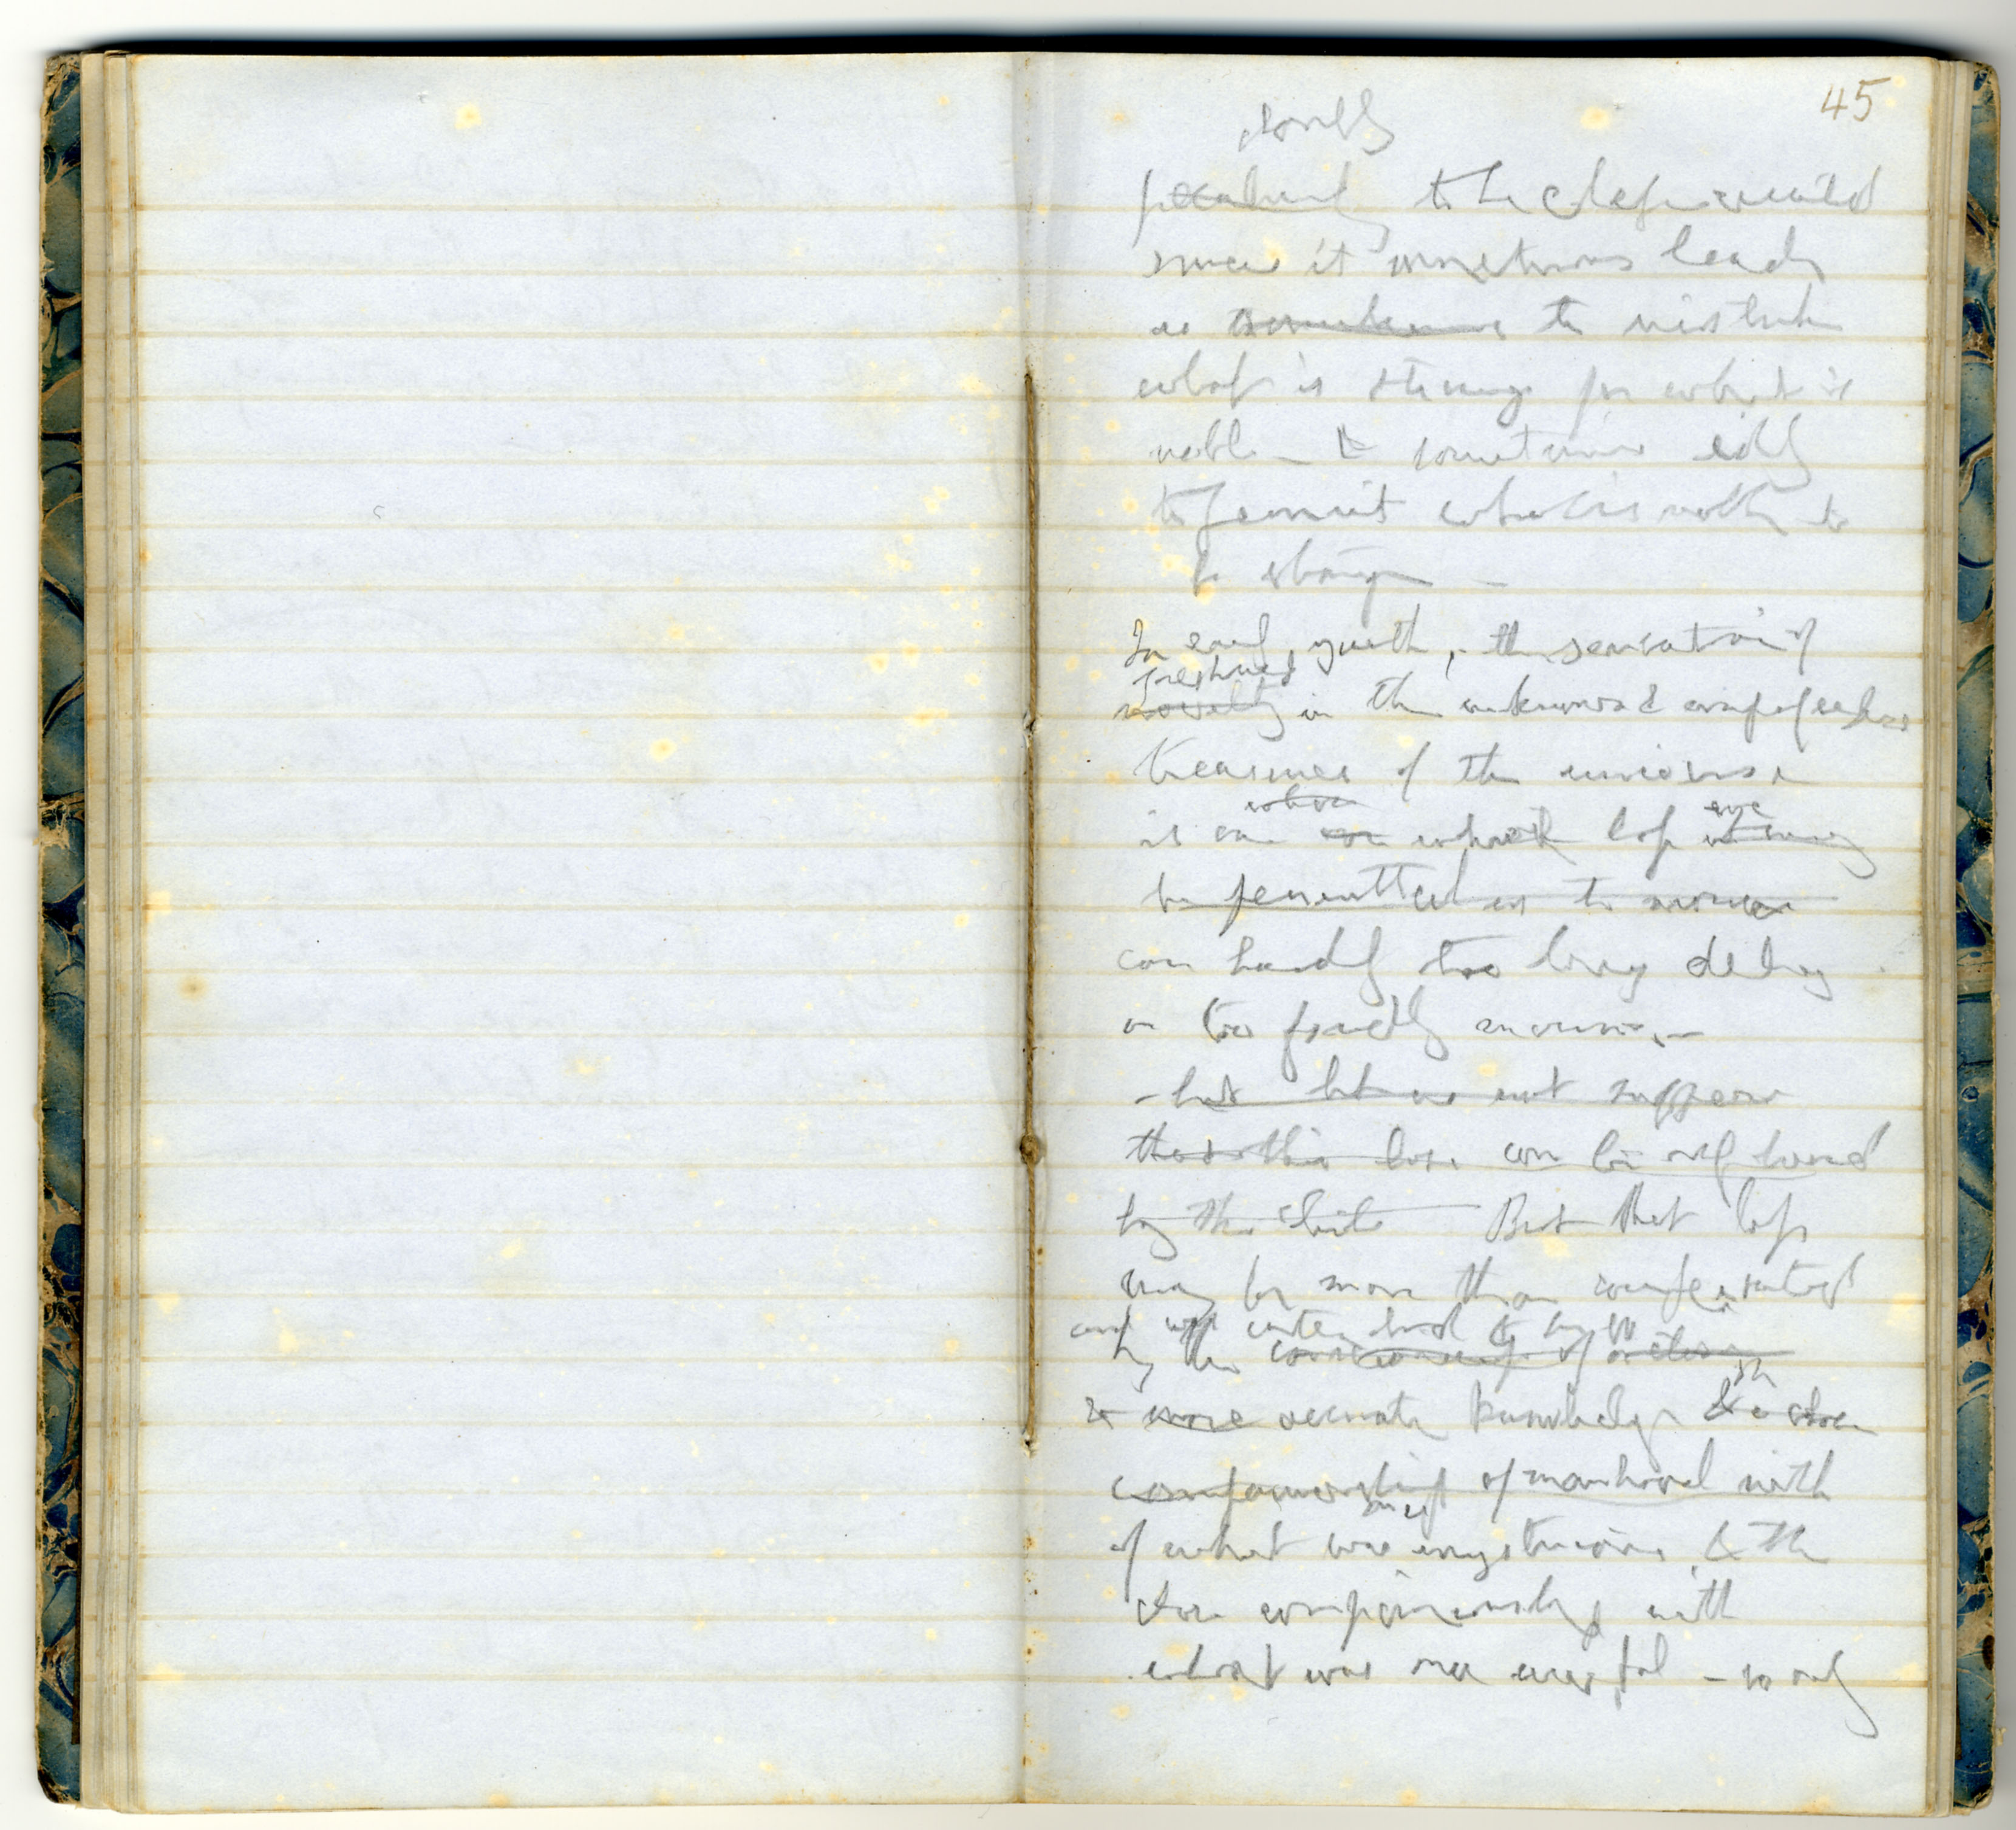 45
doubly
peculiarly to be deprecated
since it sometimes leads
us to mistake
what is strange for what is
noble - & sometimes idly
to permit what is noble to
be strange -
In early youth, the sensation of
freshness
novelty in the unknown &
treasures of the universe
is one whose
on which loss we may
be permitted us to mourn
can hardly too long delay
or too fondly mourn. -
- but let us not suppose
that this loss can be
by the But that loss
may be more than compensated
by the consciousness of
& more accurate knowledge & a close
companionship of manhood with
once
of what was mysterious & the
close companionship with
what was once - so only